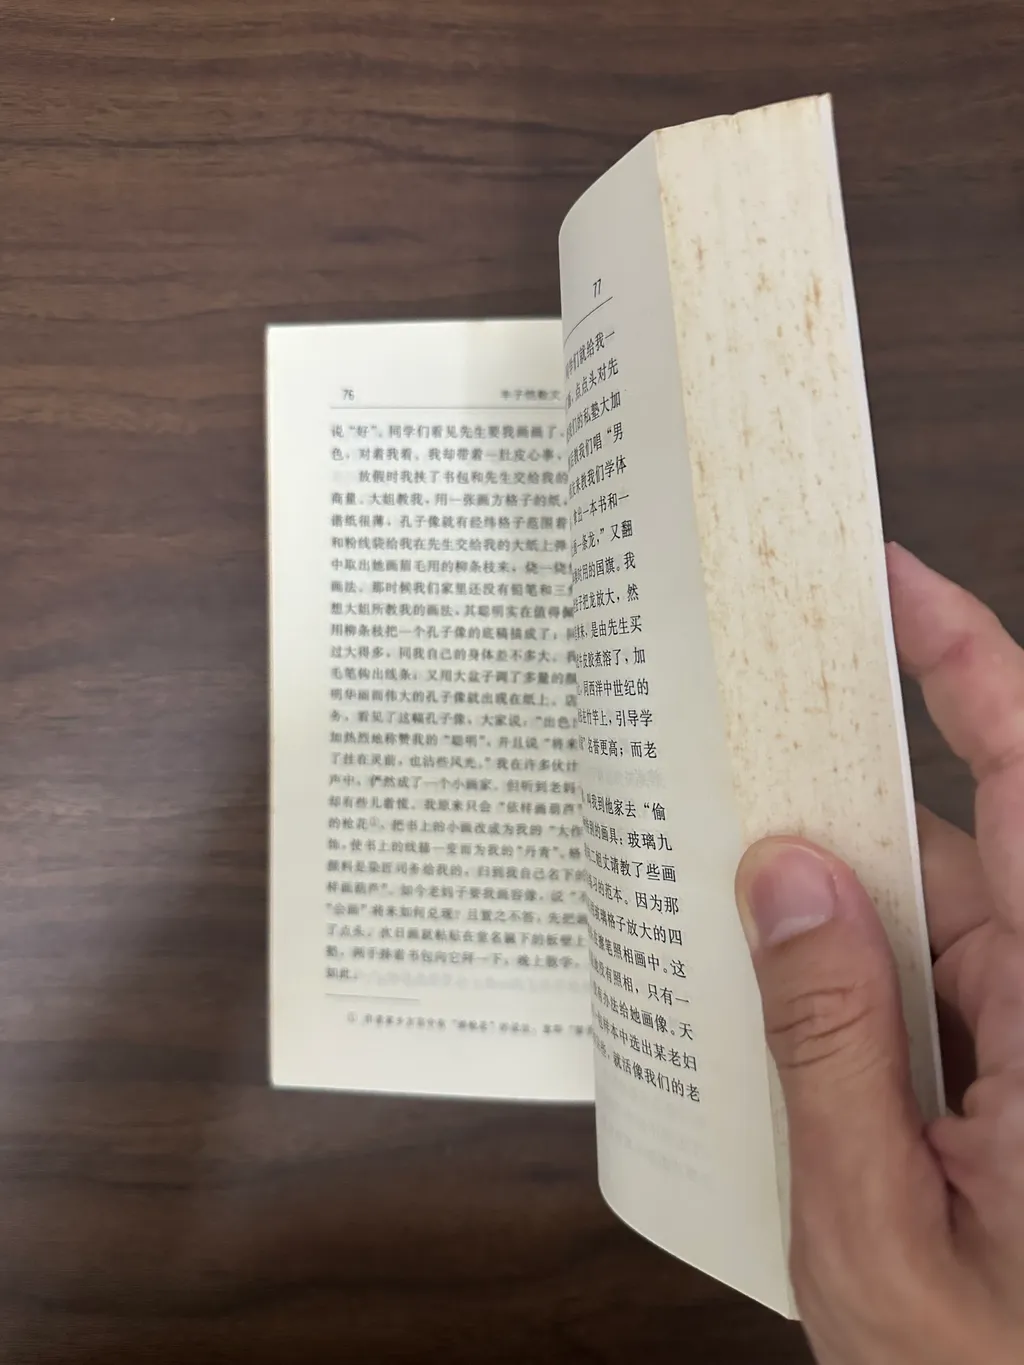 76
丰子恺散文
说“好”。同学们看见先生要我画画了,
色,对着我看。我却带着一肚皮心事,
放假时我挟了书包和先生交给我的
商量。大姐教我,用一张画方格子的纸,
谱纸很薄,孔子像就有经纬格子范围着
和粉线袋给我在先生交给我的大纸上弹
中取出她画眉毛用的柳条枝来,烧一烧
画法。那时候我们家里还没有铅笔和三
想大姐所教我的画法,其聪明实在值得佩
用柳条枝把一个孔子像的底稿描成了;
过大得多,同我自己的身体差不多大。我
毛笔钩出线条;又用大盆子调了多量的颜
明华丽而伟大的孔子像就出现在纸上。店
务,看见了这幅孔子像,大家说:“出色
加热烈地称赞我的“聪明”,并且说“将来
了挂在灵前,也沾些风光。”我在许多伙计
声中,俨然成了一个小画家。但听到老妈
却有些儿着慌。我原来只会“依样画葫芦”
的枪花①,把书上的小画改成为我的“大作
饰,使书上的线描一变而为我的“丹青”。
颜料是染匠司务给我的,归到我自己名下的
样画葫芦”。如今老妈子要我画容像,说“不
“公画”将来如何兑现?且置之不答,先把画
了点头。次日画就粘贴在堂名匾下的板壁上
塾,两手捧着书包向它拜一下;晚上散学,
如此。
77
们就给我一
点点头对先
们的私塾大加
教我们唱“男
来教我们学体
出一本书和一
一条龙,”又翻
时用的国旗。我
子把龙放大,然
来,是由先生买
皮胶煮溶了,加
同西洋中世纪的
在竹竿上,引导学
”名誉更高;而老
叫我到他家去“偷
别的画具:玻璃九
二姐丈请教了些画
习的范本。因为那
玻璃格子放大的四
擦笔照相画中。这
没有照相,只有一
有办法给她画像。天
样本中选出某老妇
就活像我们的老